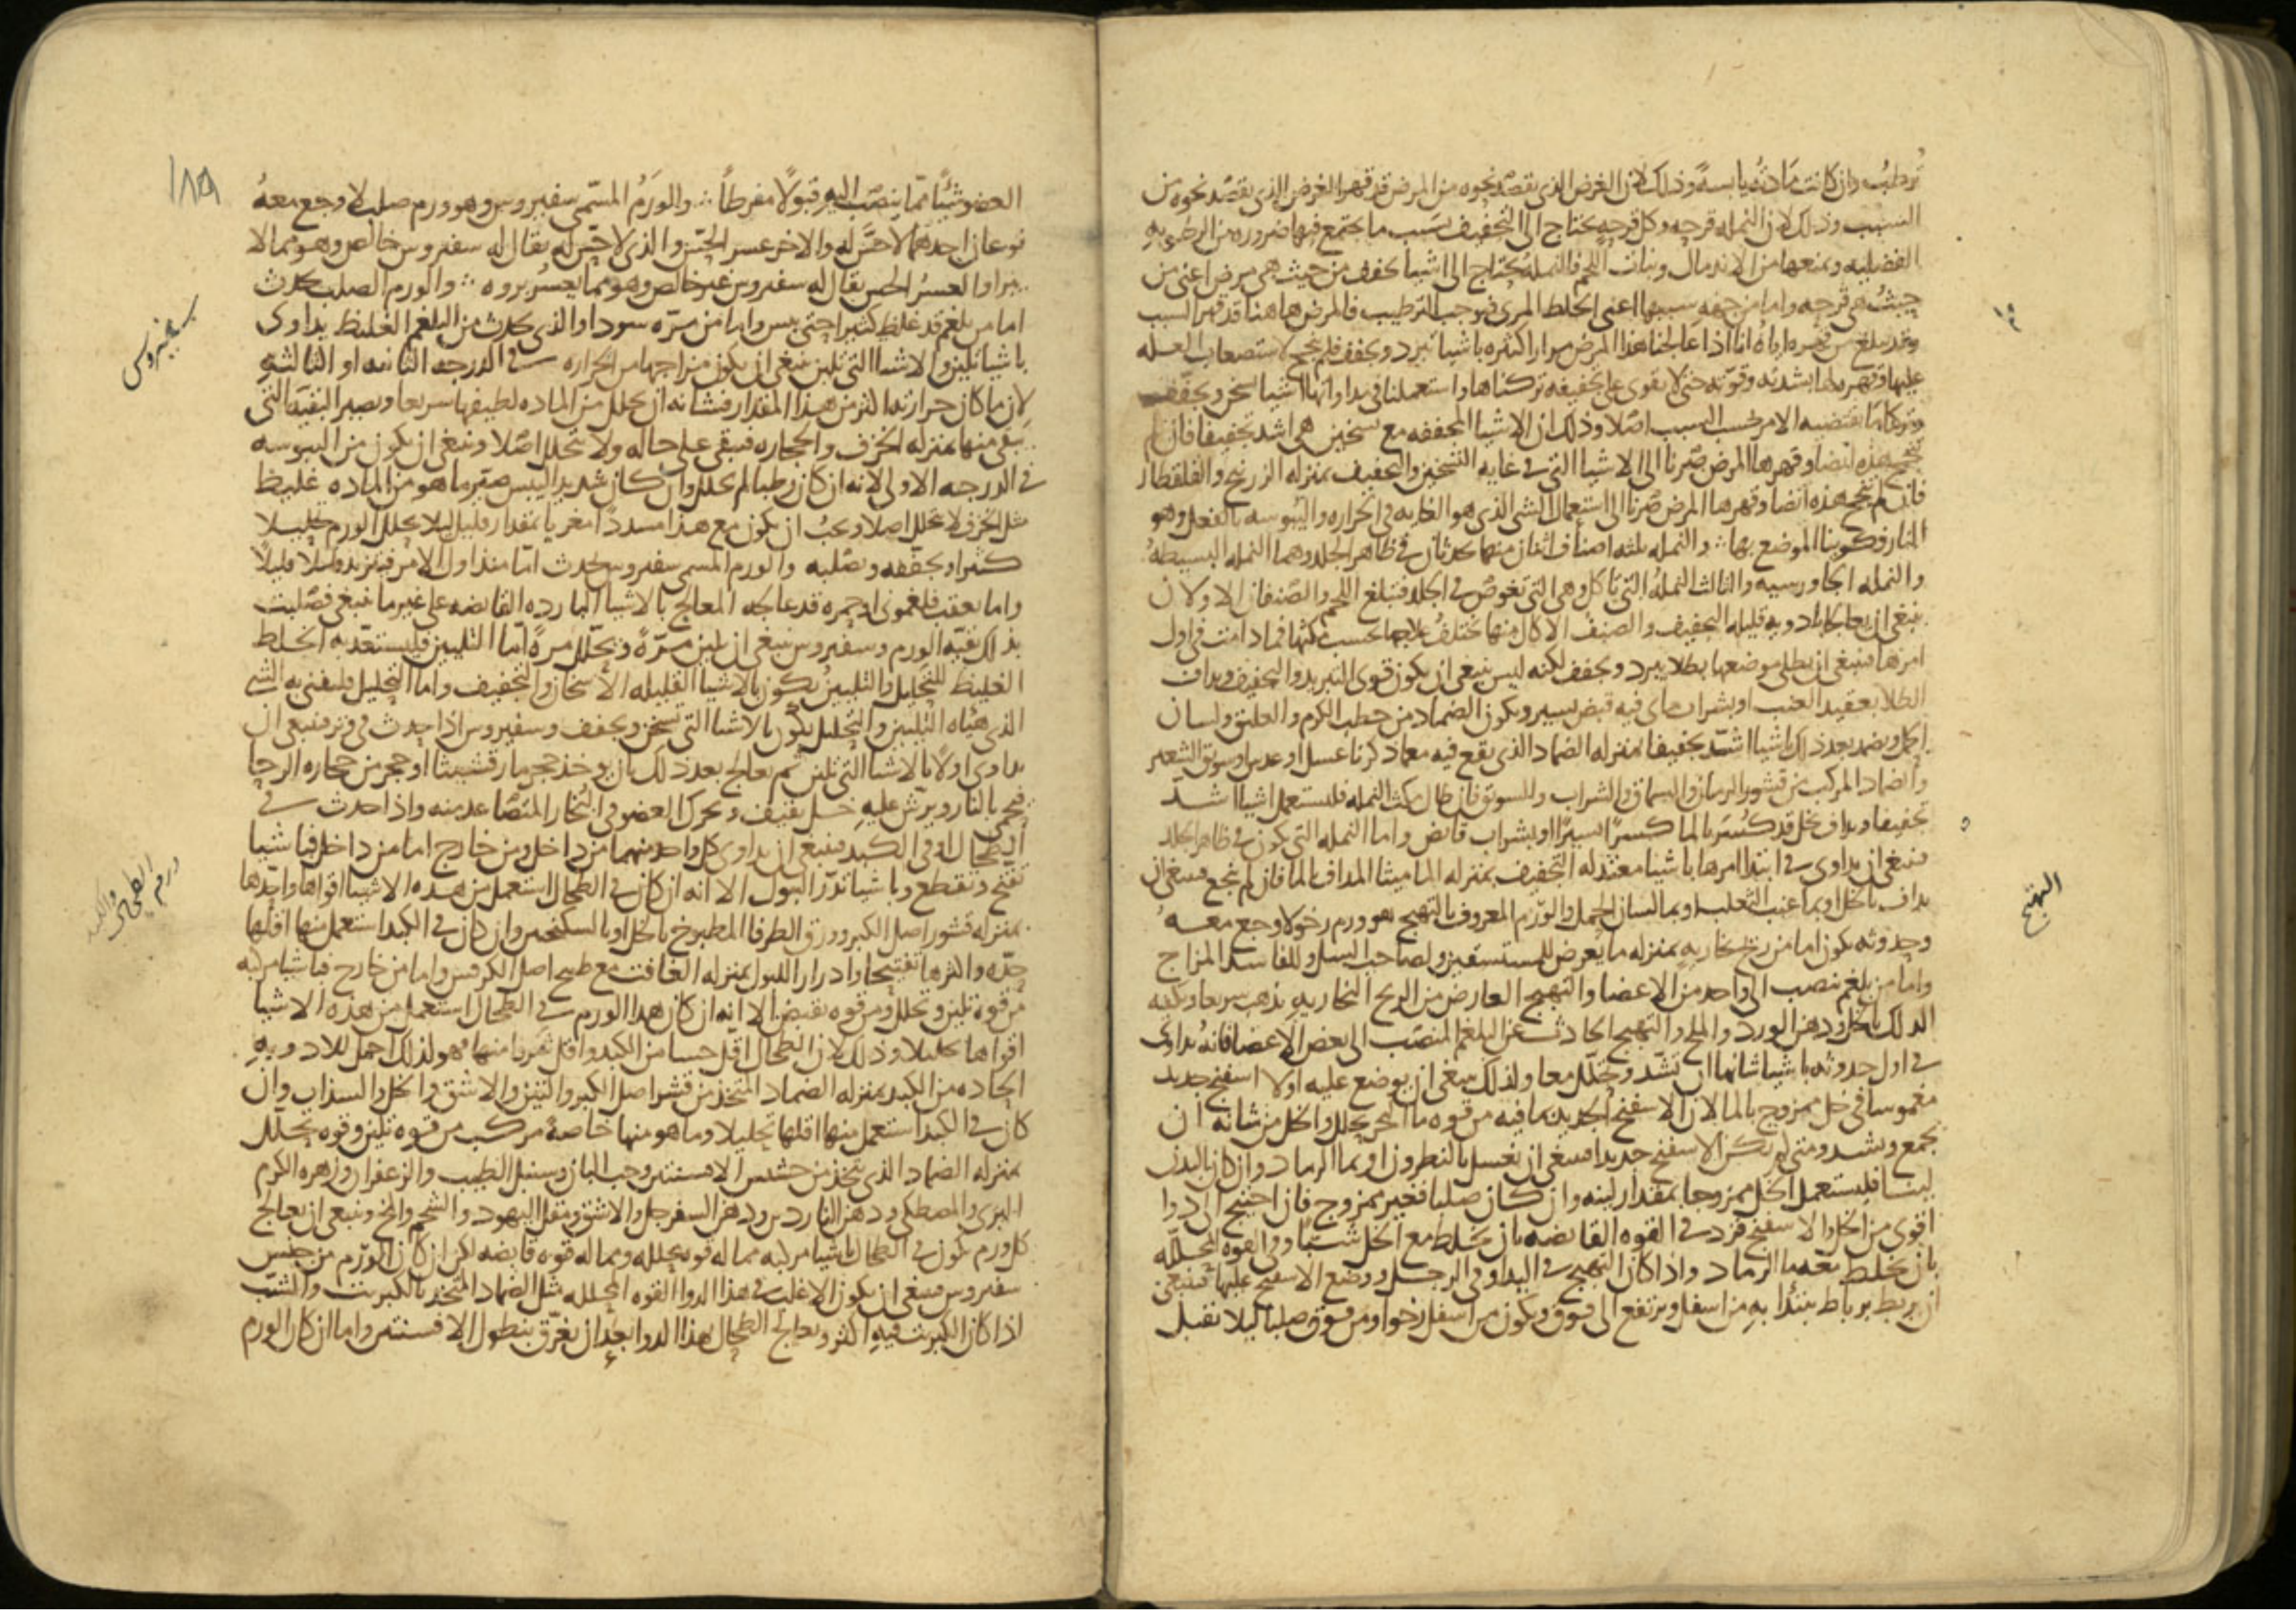 ترطب وان كانت مادته يابسة وذلك لان الغرض الذى نقصد نحوه من المرض قد قهر الغرض الذى يقصد نحوه من
السبب وذلك لان النمله قرحه وكل قرحه يحتاج الى التجفيف بسبب ما يجتمع فيها ضروره من الرطوبه
الفضليه ويمنعها من الاندمال ونبات اللحم فالنمله يحتاج الى اشيا تجفف من حيث هى مرض اعنى من
حيث هى قرحه واما من جهه سببها اعنى الخلط المرى فيوجب الترطيب فالمرض هاهنا قد قهر السبب
وقد بلغ من قهره اياه انا اذا عالجنا هذا المرض مرارا كثيره باشيا تبرد وتجفف فلم تنجح لاستصعاب العله
عليها وقهره لها بشدته وقوته حتى لا تقوى على تجفيفه تركناها واستعملنا فى مداواتها اشيا تسخن وتجفف
وتركنا ما يقتضيه الامر بحسب السبب اصلا وذلك ان الاشيا المجففه مع تسخين هى اشد تجفيفا فان لم
تنجح هذه ايضا وقهرها المرض صرنا الى الاشيا التى فى غايه التسخين والتجفيف بمنزله الزرنيخ والقلقطار
فان لم تنجح هذه ايضا وقهرها المرض صرنا الى استعمال الشى الذى هو الغايه فى الحراره واليبوسه بالفعل وهو
النار فكوينا الموضع بها ∴ والنمله ثلثه اصناف اثنان منها يحدثان فى ظاهر الجلد وهما النمله البسيطه
والنمله الجاورسيه والثالث النمله التى تاكل وهى التى تغوص فى الجلد فتبلغ اللحم والصنفان الاولان
ينبغى ان يعالجا بادويه قليله التجفيف والصنف الاكال منها يختلف علاجها بحسب مكثها فما دامت فى اول
امرها فينبغى ان يطلى موضعها بطلا يبرد ويجفف لكنه ليس ينبغى ان يكون قوى التبريد والتجفيف ويداف
الطلا بعقيد العنب او بشراب مائى فيه قبض يسير ويكون الضماد من خطب الكرم والعليق ولسان
الحمل ويضمد بعد ذلك باشيا اشد تجفيفا بمنزله الضماد الذى يقع فيه مع ما ذكرنا عسل او عدس وسويق الشعير
والضماد المركب من قشور الرمان والسماق والشراب والسويق فان طال مكث النمله فليستعمل اشيا اشد
تجفيفا ويداف بخل قد كسر بالما كسرا يسيرا او بشراب قابض واما النمله التى تكون فى ظاهر الجلد
فينبغى ان يداوى فى ابتدا امرها باشيا معتدله التجفيف بمنزله الماميثا المداف بالما فان لم ينجح فينبغى ان
يداف بالخل او بما عنب الثعلب او بما لسان الحمل والورم المعروف بالتهيج هو ورم رخو لا وجع معه
وحدوثه يكون اما من ريح بخاريه بمنزله ما يعرض للمستسقين ولصاحب السل وللفاسد المزاج
واما من بلغم ينصب الى واحد من الاعضا والتهيج العارض من الريح البخاريه يذهب سريعا ويكفيه
الدلك بالخل ودهن الورد والملح والتهيج الحادث عن البلغم المنصب الى بعض الاعضا فانه يداوى
فى اول حدوثه باشيا شانها ان تشد وتحلل معا ولذلك ينبغى ان يوضع عليه اولا اسفنج جديد
مغموسا فى خل ممزوج بالما لان الاسفنج الجديد بما فيه من قوه ما البحر يحلل والخل من شانه ان
يجمع ويشد ومتى لم يكن الاسفنج جديدا فينبغى ان يغسل بالنطرون او بما الرماد وان كان البدن
لينا فليستعمل الخل ممزوجا بمقدار لينه وان كان صلبا فغير ممزوج فان احتيج الى دوا
اقوى من الخل والاسفنج فزد فى القوه القابضه بان يخلط مع الخل شبا وفى القوه المحلله
بان يخلط معه ما الرماد واذا كان التهيج فى اليد او فى الرجل ووضع الاسفنج عليها فينبغى
ان يربط برباط يبتدا به من اسفل ويرتفع الى فوق ويكون من اسفل رخوا ومن فوق صلبا ليلا تقبل
١٥
التهيج
١٨٥
العضو شيئا مما ينصب اليه قبولا مفرطا ∴ والورم المسمى سفيروس وهو ورم صلب لا وجع معه
نوعان احدهما لا حس له والاخر عسر الحس والذى لا حس له يقال له سفيروس خالص وهو مما لا
يبرا والعسر الحس يقال له سفيروس غير خالص وهو مما يعسر بروه ∴ والورم الصلب يحدث
اما من بلغم قد غلظ كثيرا حتى يبس واما من مره سودا والذى يحدث من البلغم الغليظ يداوى
باشيا تلين والاشيا التى تلين ينبغى ان يكون مزاجها من الحراره فى الدرجه الثانيه او الثالثه
لان ما كان حرارته اكثر من هذا المقدار فشانه ان يحلل من الماده لطيفها سريعا وتصير البقيه التى
تبقى منها بمنزله الخزف والحجاره فتبقى على حاله ولا تتحلل اصلا وينبغى ان يكون من اليبوسه
فى الدرجه الاولى لانه ان كان رطبا لم يحلل وان كان شديد اليبس صير ما هو من الماده غليظ
مثل الخزف لا يحلل اصلا ويجب ان يكون مع هذا مسددا مغريا بمقدار قليل ليلا يحلل الورم تحليلا
كثيرا ويجففه ويصلبه والورم المسمى سفيروس يحدث اما منذ اول الامر فيتزيد قليلا قليلا
واما بعقب فلغمونى او حمره قد عالجه المعالج بالاشيا البارده القابضه على غير ما ينبغى فصلبت
بذلك بقيه الورم وسفيروس ينبغى ان يلين مره ويحلل مره اما التليين فليستعد به الخلط
الغليظ للتحليل والتليين يكون بالاشيا القليله الاسخان والتجفيف واما التحليل فليفنى به الشى
الذى هياه التليين والتحليل يكون بالاشيا التى تسخن وتجفف وسفيروس اذا حدث فى وتر فينبغى ان
يداوى اولا بالاشيا التى تلين ثم يعالج بعد ذلك بان يوخذ حجر مارقشيثا او حجر من حجاره الرحا
فيحمى بالنار ويرش عليه خل ثقيف ويحرك العضو فى البخار المتصاعد منه واذا حدث فى
الطحال او فى الكبد فينبغى ان يداوى كل واحد منهما من داخل ومن خارج اما من داخل فباشيا
تفتح وتقطع وباشيا تدر البول الا انه ان كان فى الطحال استعمل من هذه الاشيا اقواها واحدها
بمنزله قشور اصل الكبر وورق الطرفا المطبوخ بالخل او بالسكنجبين وان كان فى الكبد استعمل منها اقلها
حده واكثرها تفتيحا وادرارا للبول بمنزله الغافت مع طبيخ اصل الكرفس واما من خارج فباشيا مركبه
من قوه تلين وتحلل ومن قوه تقبض الا انه ان كان هذا الورم فى الطحال استعمل من هذه الاشيا
اقواها تحليلا وذلك لان الطحال اقل حسا من الكبد واقل شريانا منها فهو لذلك احمل للادويه
الحاده من الكبد بمنزله الضماد المتخذ من قشر اصل الكبر والتين والاشق والخل والسذاب وان
كان فى الكبد استعمل منها اقلها تحليلا وما هو منها خاصة مركب من قوه تلين وقوه تحلل
بمنزله الضماد الذى يتخذ من حشيش الافسنتين وحب البان وسنبل الطيب والزعفران وزهره الكرم
البرى والمصطكى ودهن الناردين ودهن السفرجل والاشق ومقل اليهود والشحم والمخ وينبغى ان يعالج
كل ورم يكون فى الطحال باشيا مركبه مما له قوه محلله ومما له قوه قابضه لكن ان كان الورم من جنس
سفيروس فينبغى ان يكون الاغلب فى هذا الدوا القوه المحلله مثل الضماد المتخذ بالكبريت والشب
اذا كان الكبريت فيه اكثر ويعالج الطحال بهذا الدوا بعد ان يعرق بنطول الافسنتين واما ان كان الورم
سفيروس
ورم الطحال والكبد